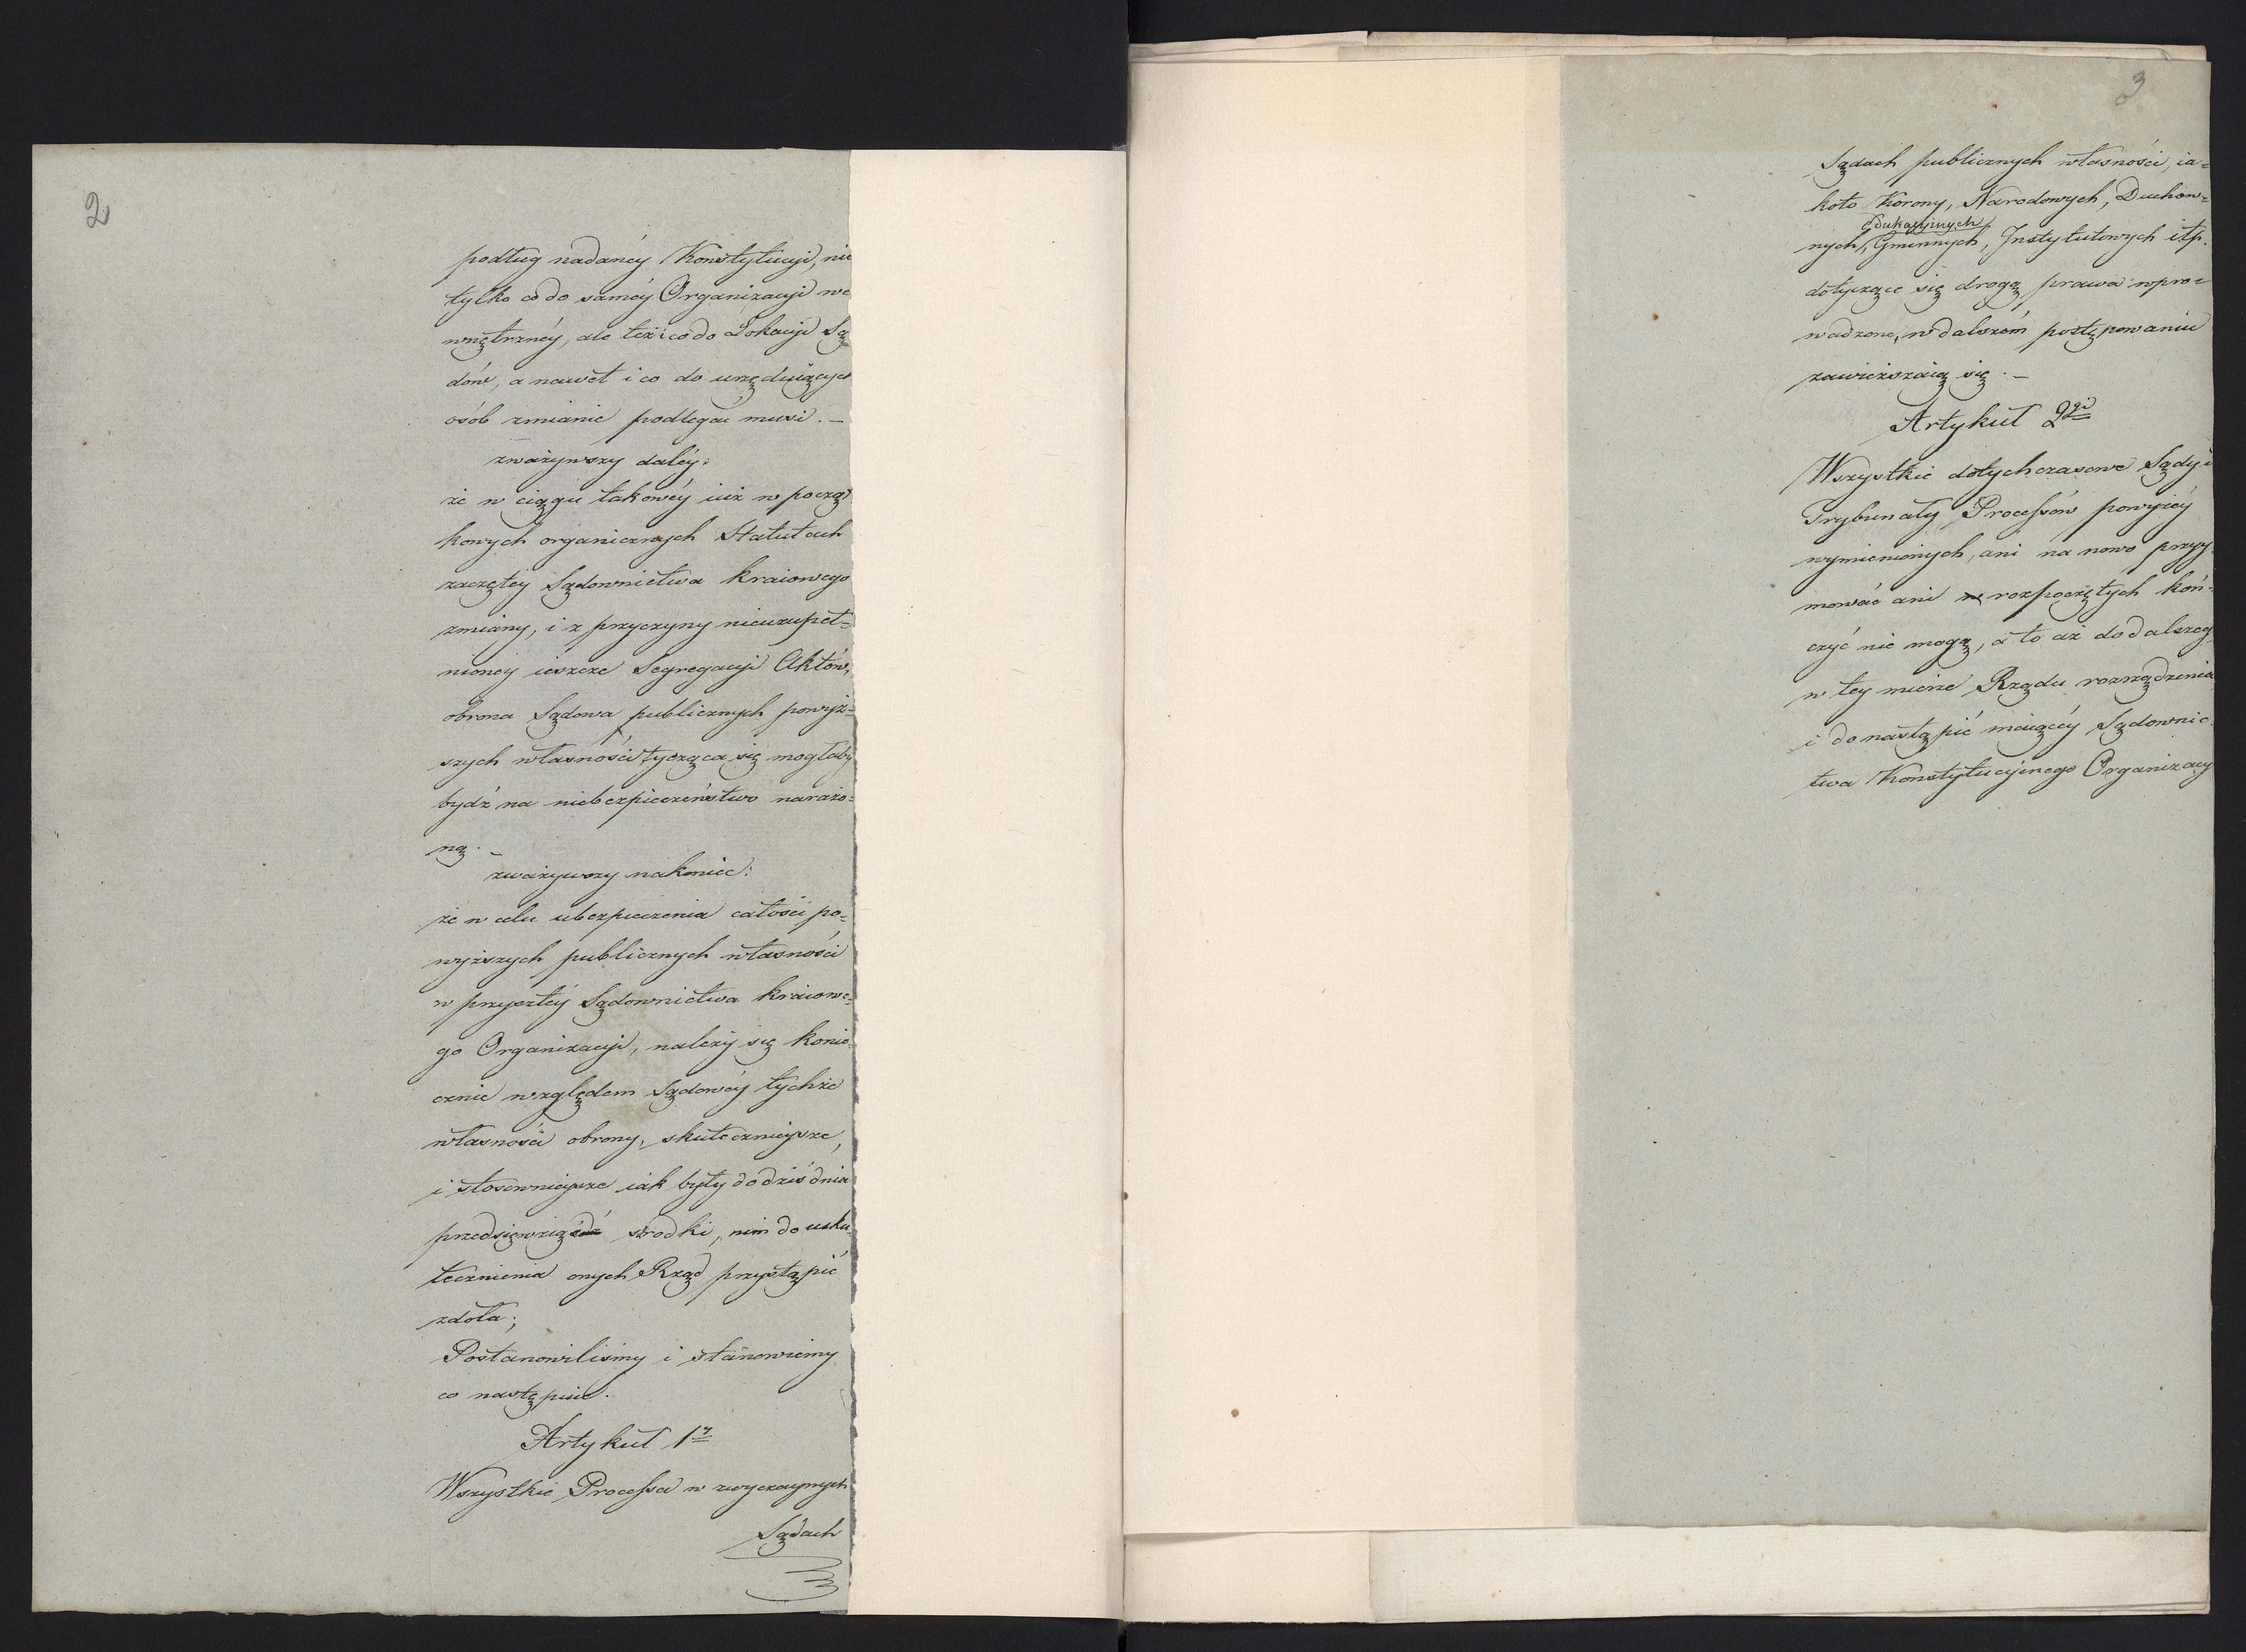 2
podług nadanéy Konstytucyi, nie
tylko co do saméy Organizacyi we
wnętrznéy, ale też i co do Lokacyi Są
dów, a nawet i co do urzęduiących
osób zmianie podlegać musi. –
zważywszy daléy:
że w ciągu takowéy iuż w począt
kowych organicznych Statutach
zaczętey Sądownictwa kraiowego
zmiany, i z przyczyny nieuzupeł=
nioney ieszcze Segregacyi Aktów,
obrona Sądowa publicznych powyż=
szych własności tycząca się mogłaby
bydź na niebezpieczeństwo narażo=
ną. –
zważywszy nakoniec:
że w celu ubezpieczenia całości po=
wyższych publicznych własności
w przyszłéy Sądownictwa kraiowe=
go Organizacyi, należy się konie=
cznie względem Sądowéy tychże
własności obrony, skutecznieysze,
i stosownieysze iak były do dziś dnia
przedsięwziąść srodki, nim do usku=
tecznienia onych Rząd przystąpić
zdoła;
Postanowiliśmy i stanowiemy
co następuie.
Artykuł 1y
Wszystkie Processa w zwyczaynych
Sądach
3
Sądach publicznych własności, ia=
koto Korony, Narodowych, Duchow=
Edukacyinych
nych, Gminnych, Instytutowych itp.
dotyczące się drogą prawa wpro=
wadzone, w dalszém postępowaniu
zawieszaią się. –
Artykuł 2gi
Wszystkie dotychczasowe Sądy i
Trybunały Processów powyżéy
wymienionych, ani na nowo przyy
mować ani rozpoczętych koń=
czyć nie mogą, a to aż do dalszeg
w tey mierze Rządu rozrządzenia
i do nastąpić maiącéy Sądownic
twa Konstytucyinego Organizacy